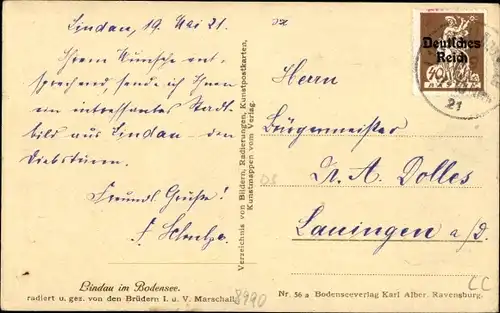 Lindau, 19. Mai 21.
Ihrem Wunsche ent-
sprechend, sende ich Ihnen
ein interessantes Stadt-
bild aus Lindau – den
Diebsturm.
Freundl. Grüße!
Herrn
Bürgermeister
A. Dolles
Lauingen a/D.
Deutsches
Reich
40
21
Verzeichnis von Bildern, Radierungen, Kunstpostkarten,
Kunstmappen vom Verlag.
Lindau im Bodensee.
radiert u. ges. von den Brüdern I. u. V. Marschall.
8990
Nr. 56 a Bodenseeverlag Karl Alber, Ravensburg.
CC